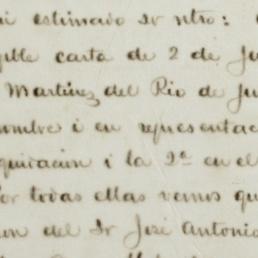 i estimado Sr ntro:
ble carta de 2 de Ju
Martinez del Rio de Ju
ombre i en representac
quidacion i la 2ª en el
Por todas ellas vemos qu
on del Sr José Antonio